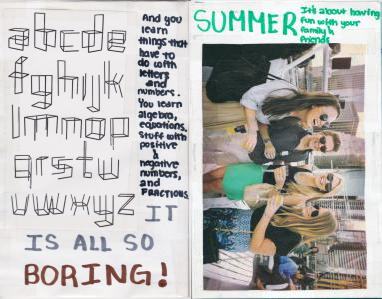 abcde
fghijk
lmnop
qrstu
vwxyz
And you
learn
things that
have to
do with
letters
and
numbers.
You learn
algebra,
equations.
Stuff with
positive
&
negative
numbers,
and
FRACTIONS.
IT
IS ALL SO
BORING!
SUMMER
It's about having
fun with your
family &
friends